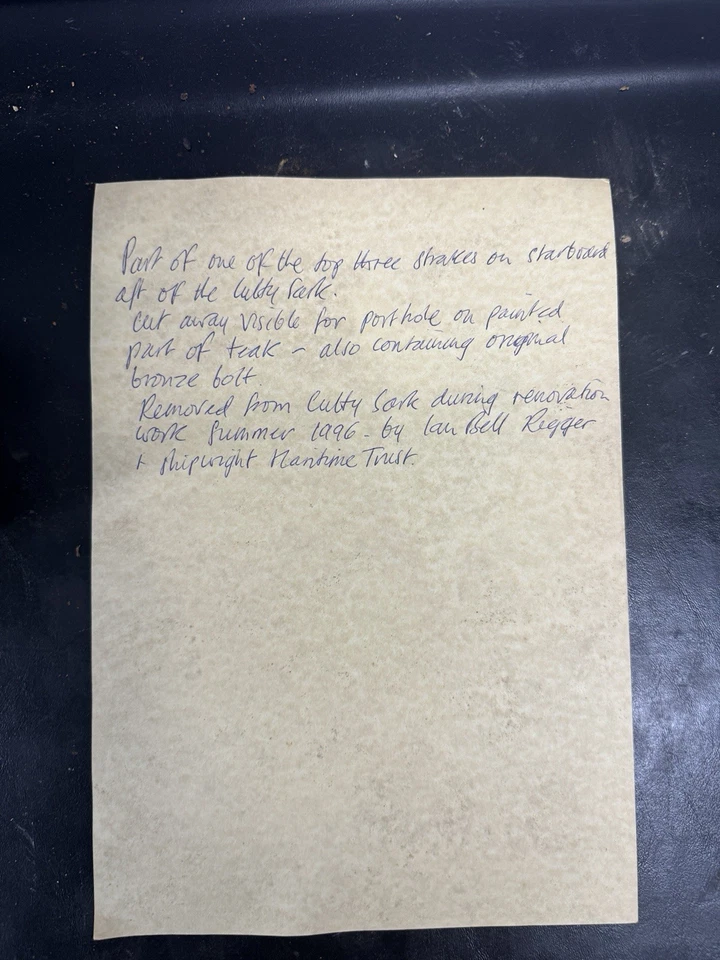 Part of one of the top three strakes on starboard
aft of the Cutty Sark.
Cut away visible for porthole on painted
part of teak - also containing original
bronze bolt.
Removed from Cutty Sark during renovation
work Summer 1996 - by Ian Bell Rigger
+ shipwright Maritime Trust.